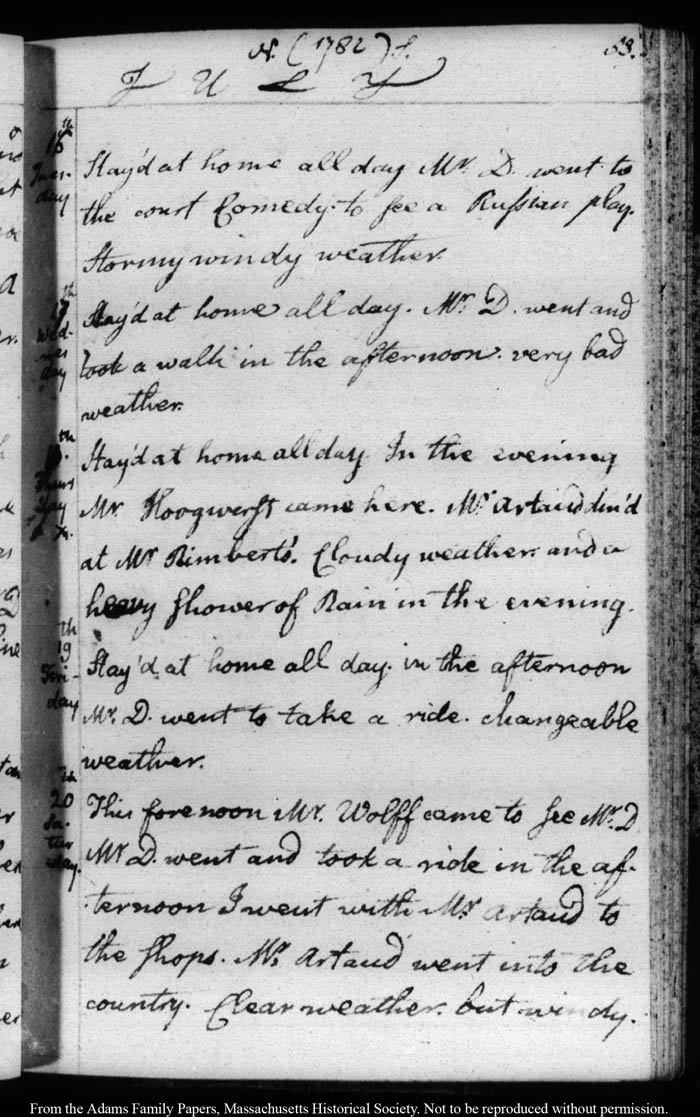 N. (1782) S. 53.
JULY
16th Tues-
day
Stay'd at home all day Mr. D. went to
the court Comedy to see a Russian play.
Stormy windy weather.
17th
Wed-
nes
day
Stay'd at home all day. Mr. D. went and
took a walk in the afternoon. very bad
weather.
th.
Thurs
day
Stay'd at home all day In the evening
Mr. Hoogwerft came here. Mr. Artaud din'd
at Mr Rimbert's. Cloudy weather. and a
heavy shower of Rain in the evening.
th
19
Fri-
day
Stay'd at home all day. in the afternoon
Mr. D. went to take a ride. changeable
weather.
th
20
Sa-
tur
day.
This forenoon Mr. Wolff came to see Mr. D
Mr D. went and took a ride in the af-
ternoon I went with Mr. Artaud to
the shops. Mr. Artaud went into the
country. Clear weather. but windy.
From the Adams Family Papers, Massachusetts Historical Society. Not to be reproduced without permission.